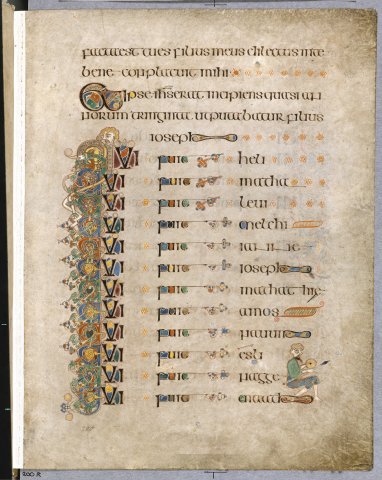 facta est tu es filius meus dilectus in te
bene conplacuit mihi
Et ipse ihs erat incipiens quasi an
norum triginta ut putabatur filius
ioseph
Qui fuit heli
Qui fuit matha
Qui fuit leui
Qui fuit melchi
Qui fuit
Qui fuit ioseph
Qui fuit mathathie
Qui fuit amos
Qui fuit nauum
Qui fuit esli
Qui fuit nagge
Qui fuit maath
200 R